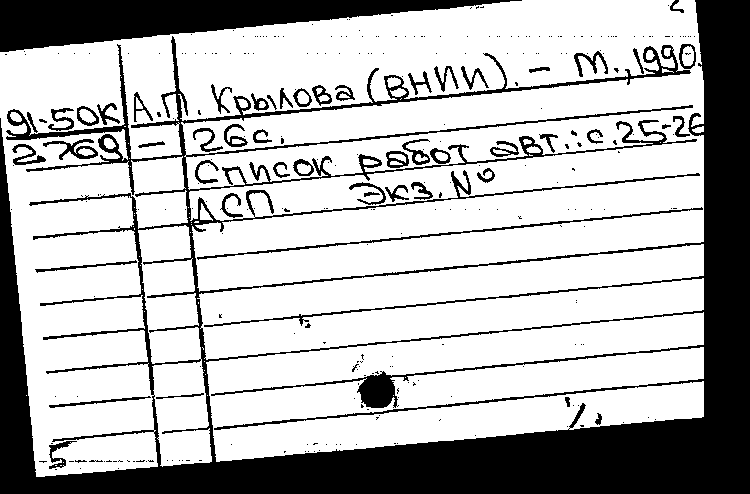 2
91-50К А.П. Крылова (ВНИИ). – М., 1990.
2769 — 26с.
Список работ авт.: с. 25-26
ДСП. Экз. №
5